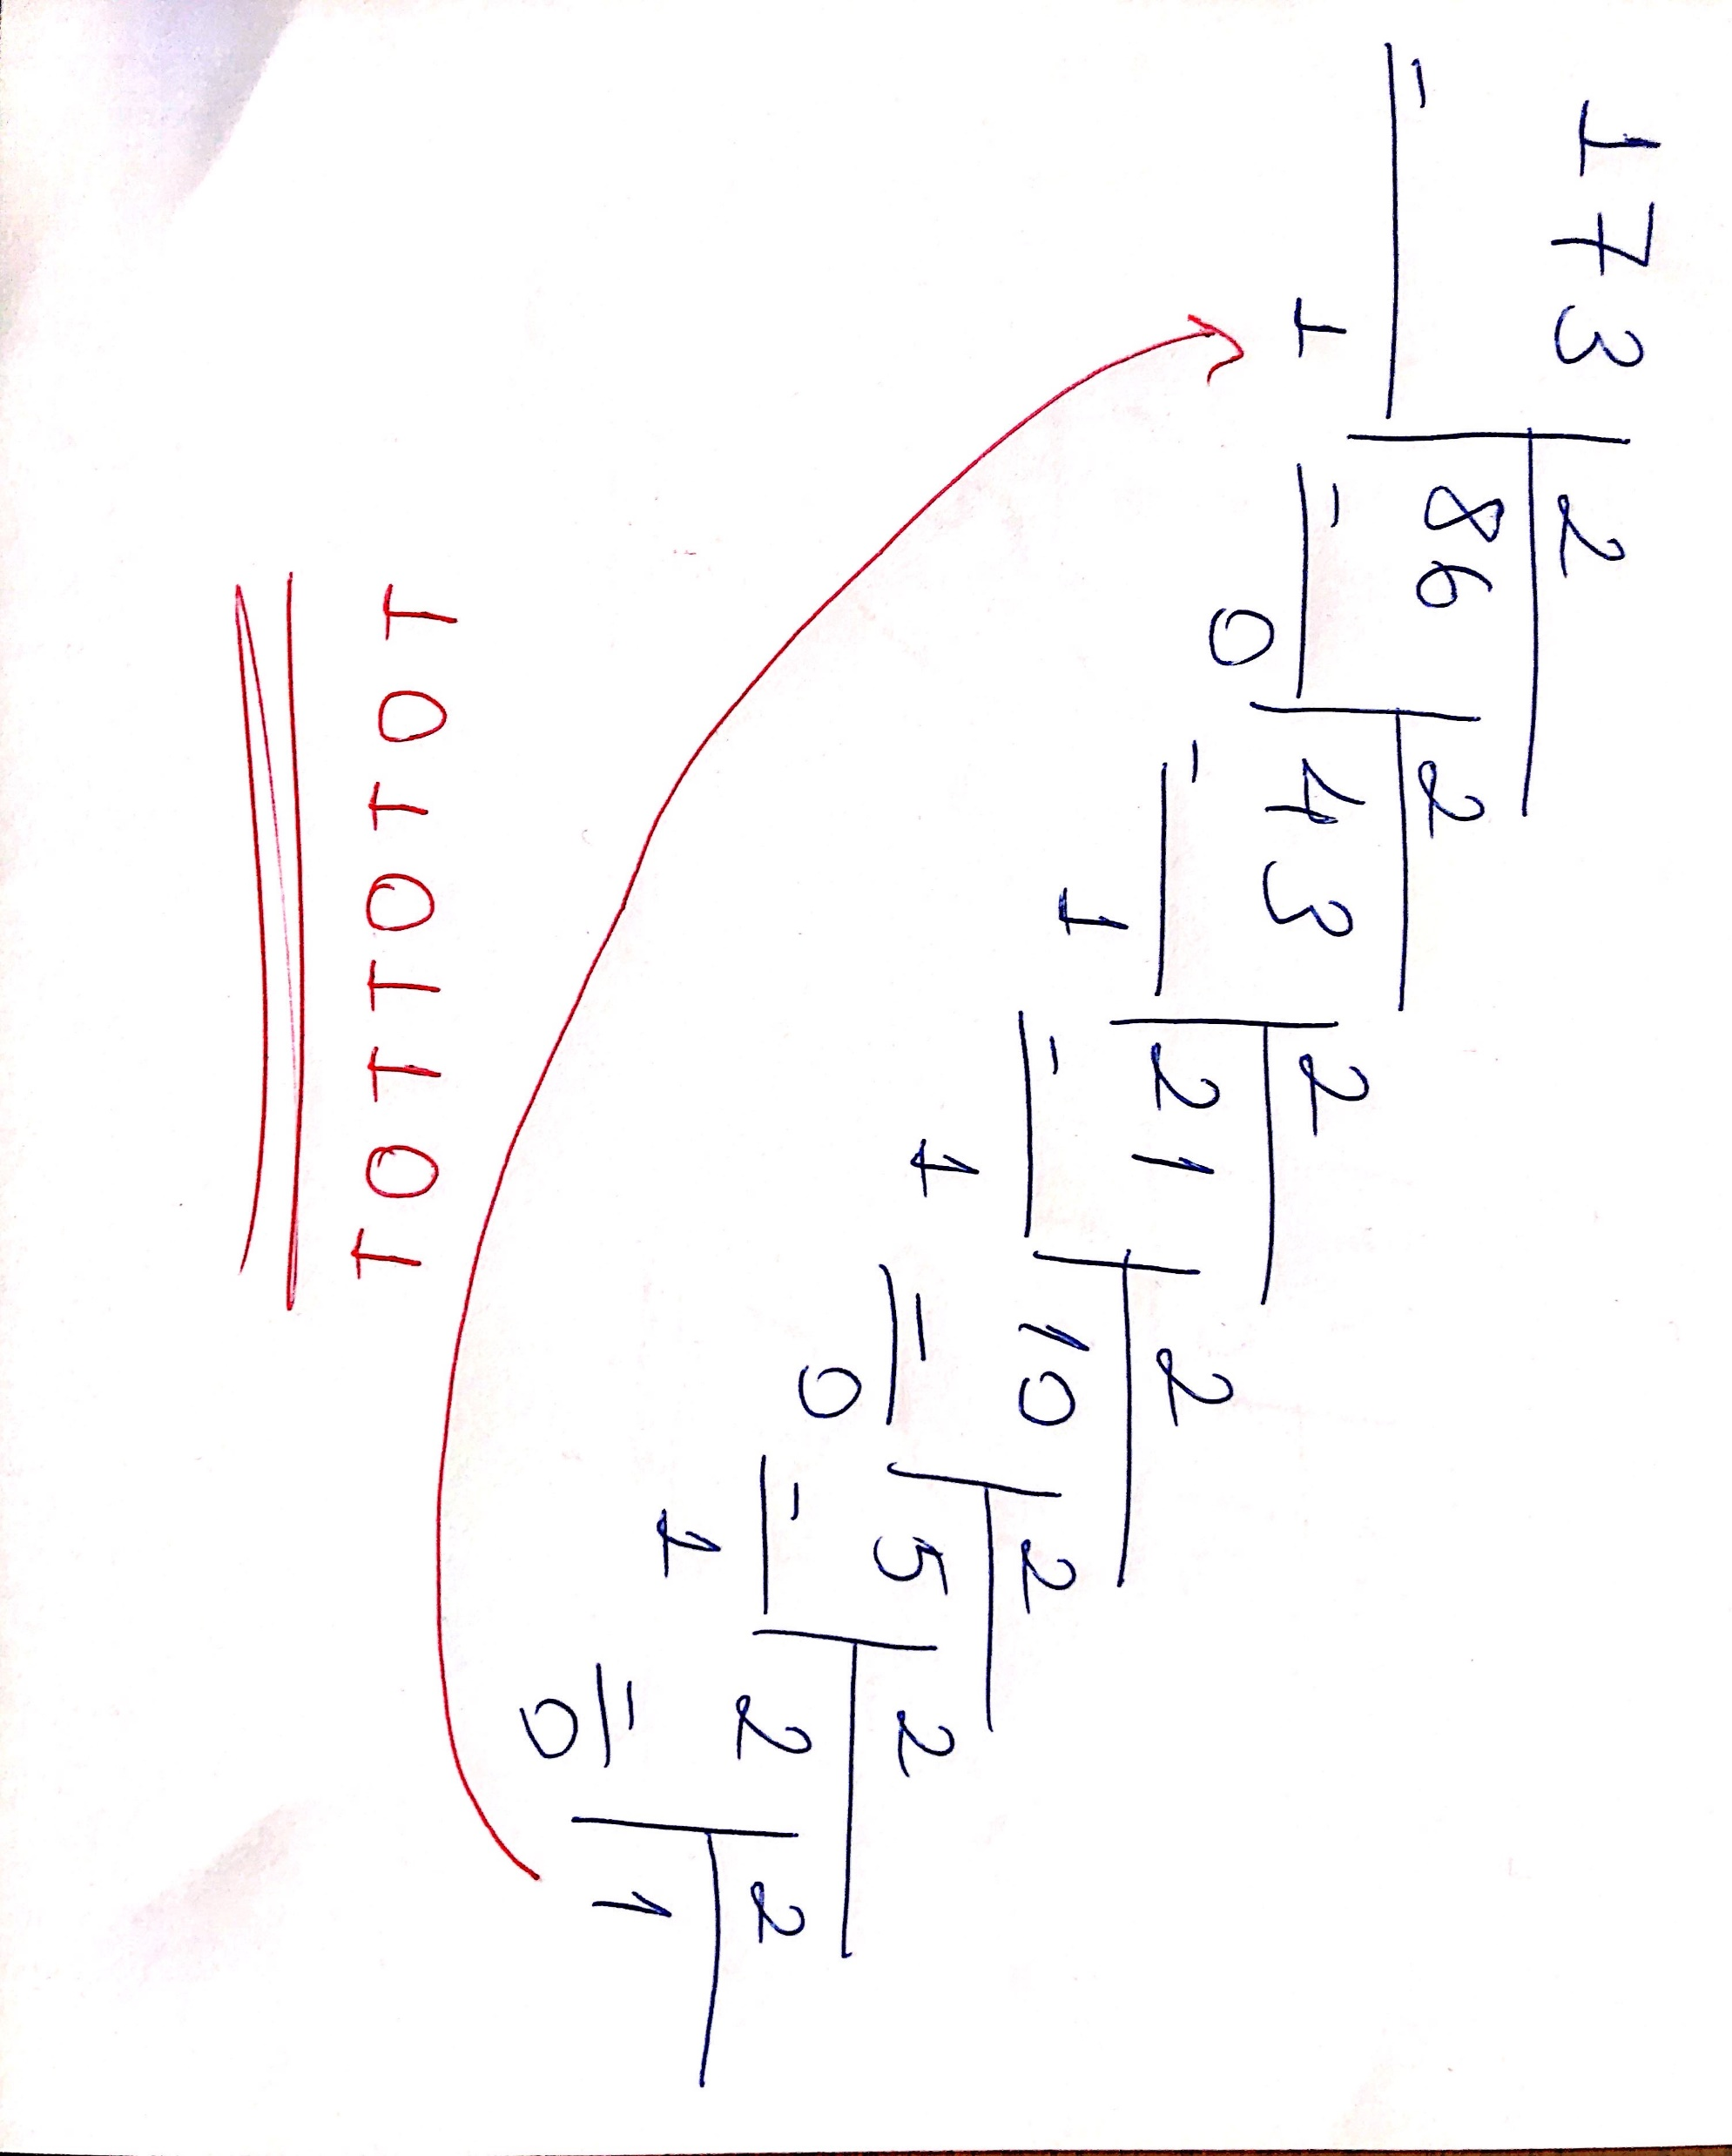 173 2
- 86 2
1 - 43 2
0 - 21 2
1 - 10 2
1 - 5 2
0 - 2 2
1 - 1
0
10101101